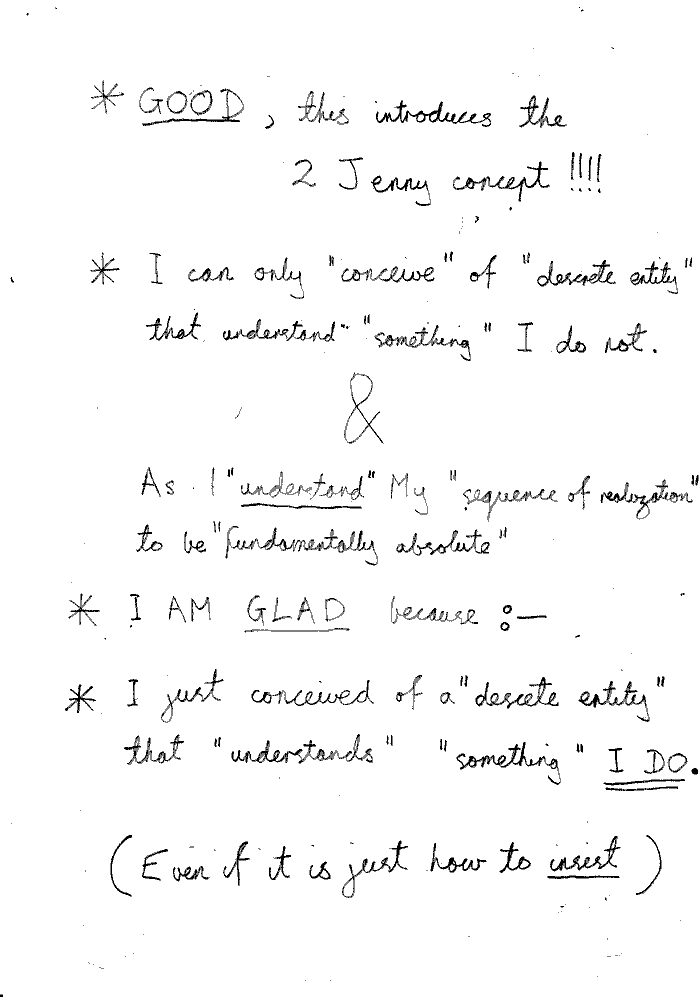 * GOOD, this introduces the
2 Jenny concept !!!!
* I can only "conceive" of "descrete entity"
that understand "something" I do not.
&
As I "understand" My "sequence of realization"
to be "fundamentally absolute"
* I AM GLAD because :—
* I just conceived of a "descete entity"
that "understands" "something" I DO.
(Even if it is just how to insest)